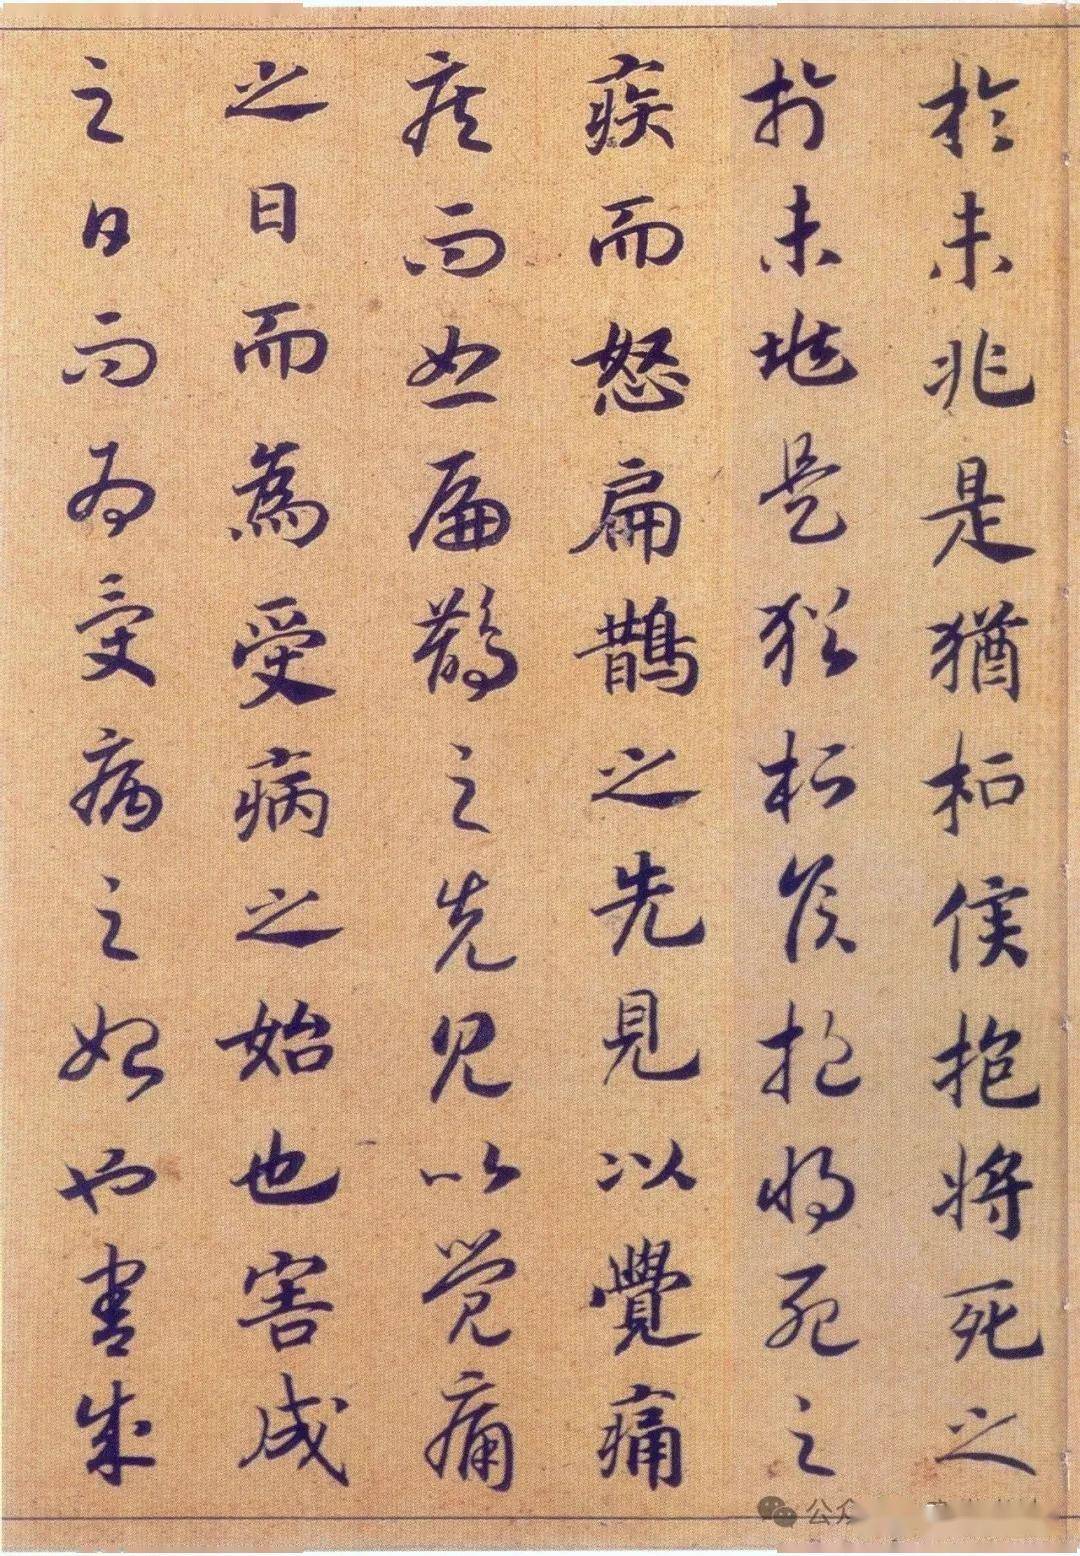 於未兆是猶桓侯抱將死之
於未兆是猶桓侯抱將死之
疾而怒扁鵲之先見以覺痛
疾而怒扁鵲之先見以覺痛
之日而為受病之始也害成
之日而為受病之始也害成
公众